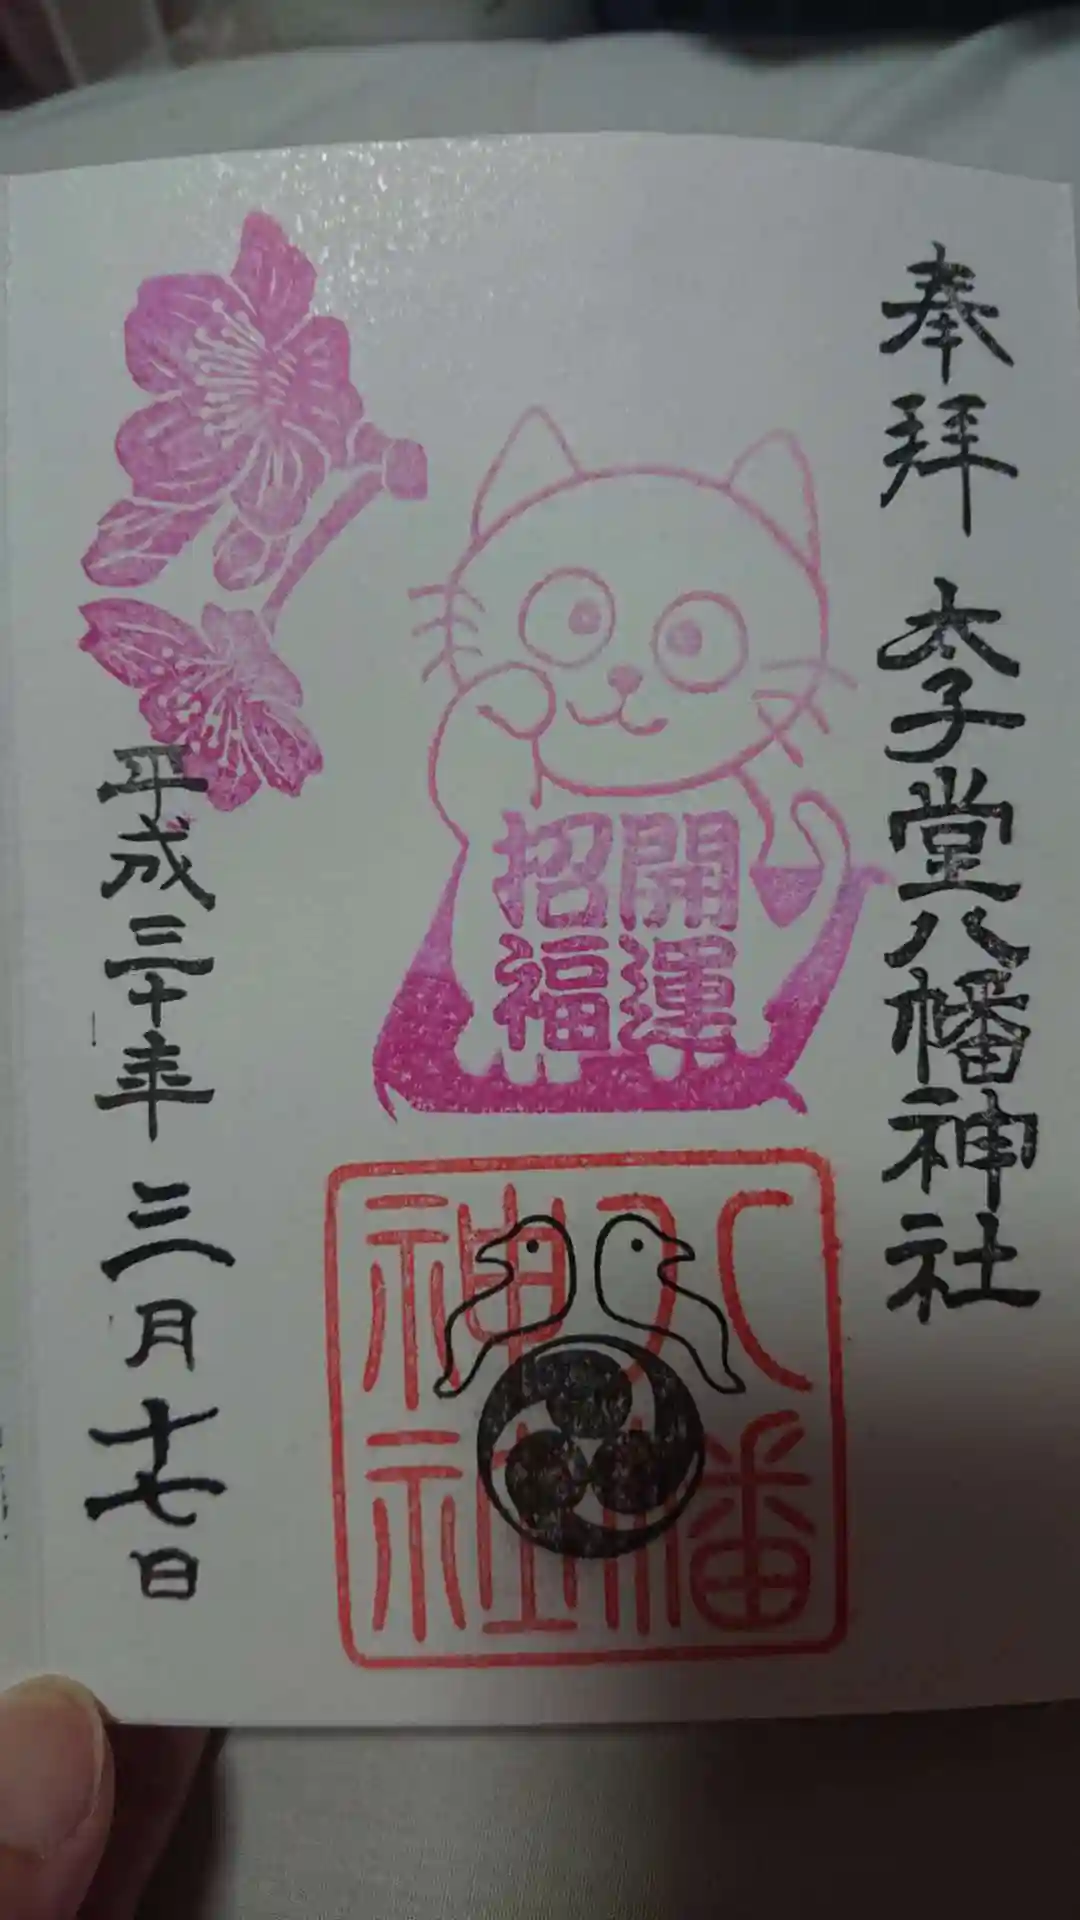 奉拝 太子堂八幡神社
開運
招福
八幡
神社
平成三十年 三月十七日